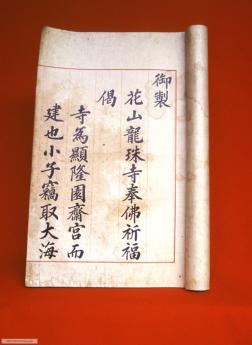 御製
花山龍珠寺奉佛祈福
偈
寺爲顯隆園齋宮而
建也小子竊取大海